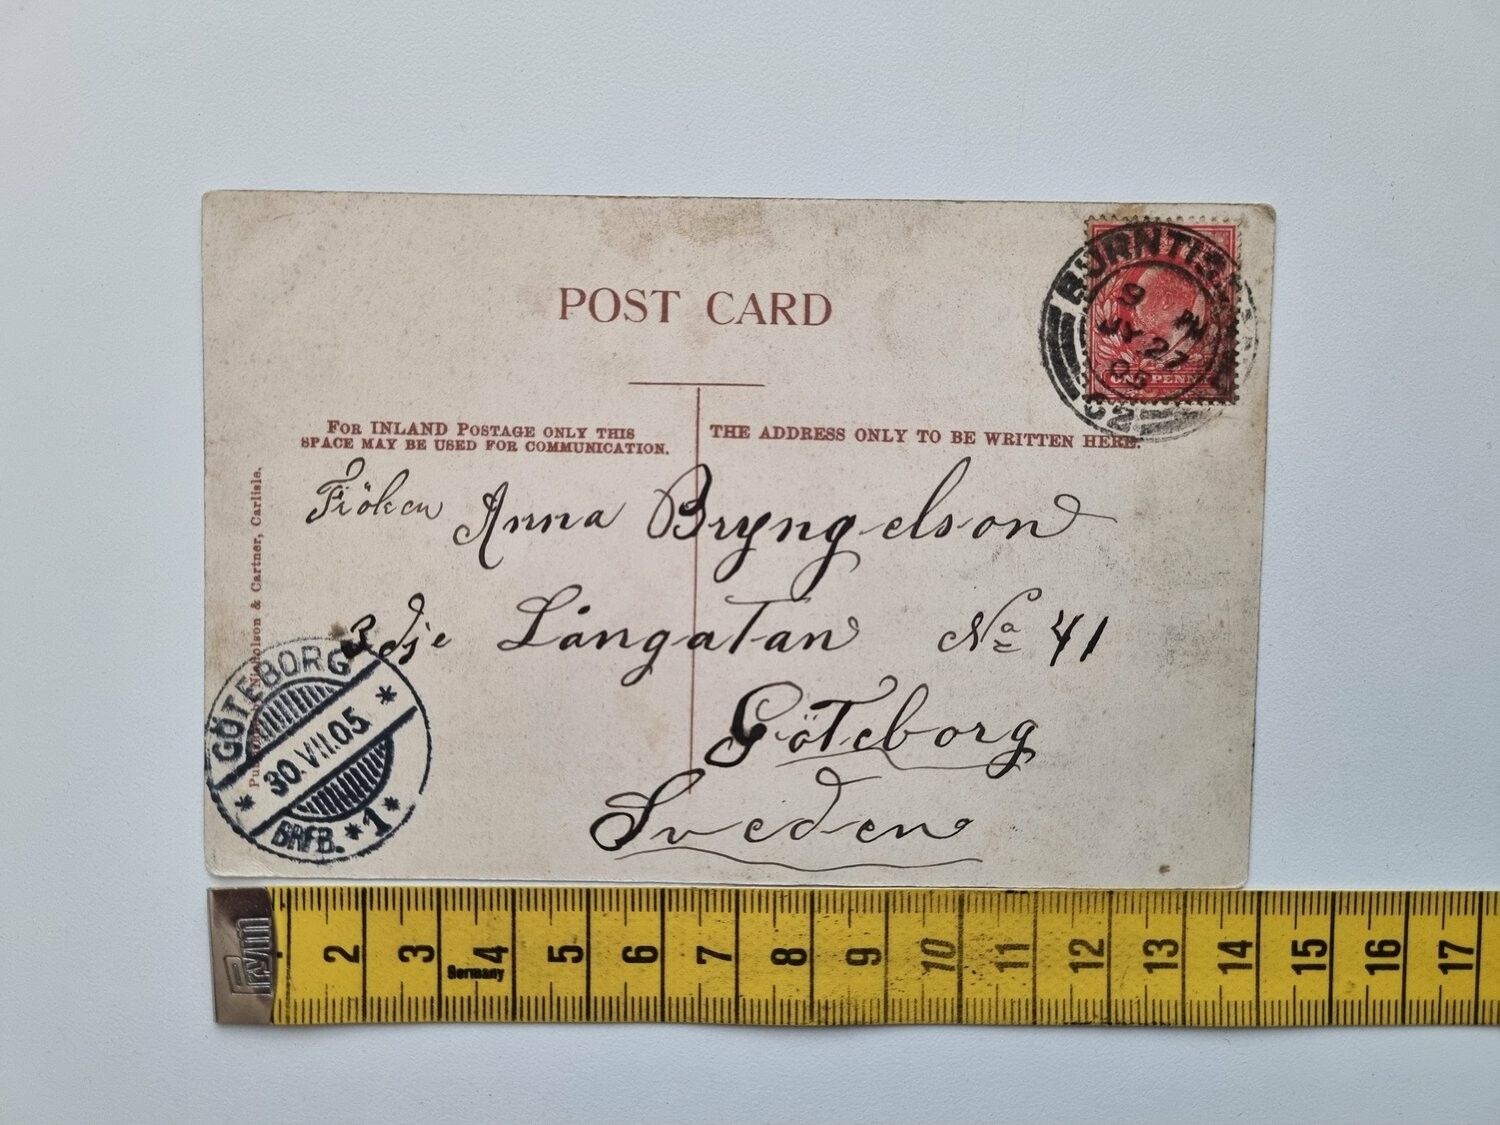 POST CARD
FOR INLAND POSTAGE ONLY THIS
SPACE MAY BE USED FOR COMMUNICATION.
THE ADDRESS ONLY TO BE WRITTEN HERE.
BURNTIS
9
JY 27
05
ONE PENNY
Fröken Anna Bryngelson
3dje Långatan No 41
Göteborg
Sweden
Nicholson & Cartner, Carlisle.
GÖTEBORG
* 30.VII.05 *
BRFB. * 1 *
Prym
2 3 4 5 6 7 8 9 10 11 12 13 14 15 16 17
Germany